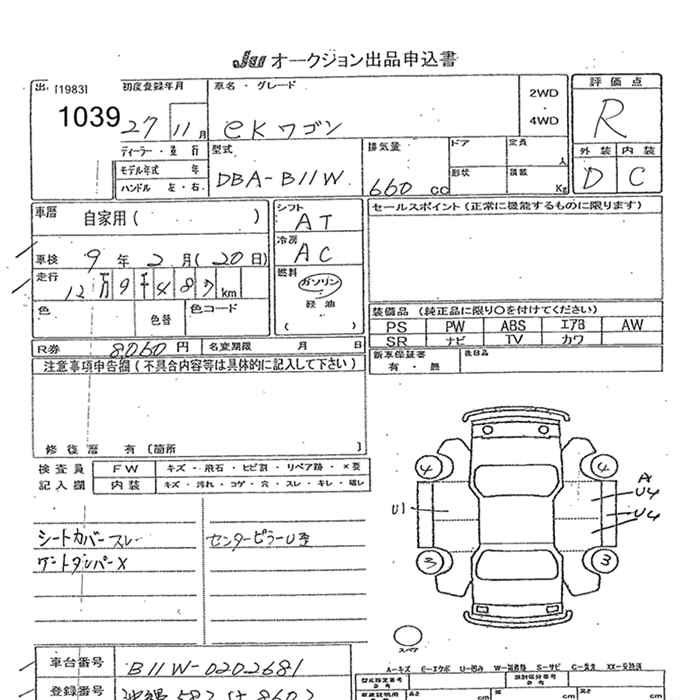 JU オークション出品申込書
出 [1983]
1039
初度登録年月
27 11 月
ディーラー・並 行
モデル年式 年
ハンドル 左・右
車名・グレード
eKワゴン
2WD
・
4WD
型式
DBA-B11W
排気量
660 cc
ドア
定員
人
形状
積載
Kg
評価点
R
外装 内装
D C
車歴 自家用( )
車検 9年 2月(20日)
走行 12万9千487 km
色 色替 色コード
シフト
AT
冷房
AC
燃料
ガソリン
・
軽 油
( )
セールスポイント(正常に機能するものに限ります)
装備品(純正品に限り○を付けてください)
PS PW ABS エアB AW
SR ナビ TV カワ
新車保証書
有・無
後日品
R券 8060円 名変期限 月 日
注意事項申告欄(不具合内容等は具体的に記入して下さい)
修復歴 有〔箇所 〕
検査員 FW キズ・飛石・ヒビ割・リペア跡・×要
記入欄 内装 キズ・汚れ・コゲ・穴・スレ・キレ・破レ
シートカバースレ
センターピラーU歪
4 4
U1
A
U4
U4
3 3
スペア
A-キズ E-エクボ U-凹み
車台番号 B11W-0202681
登録番号